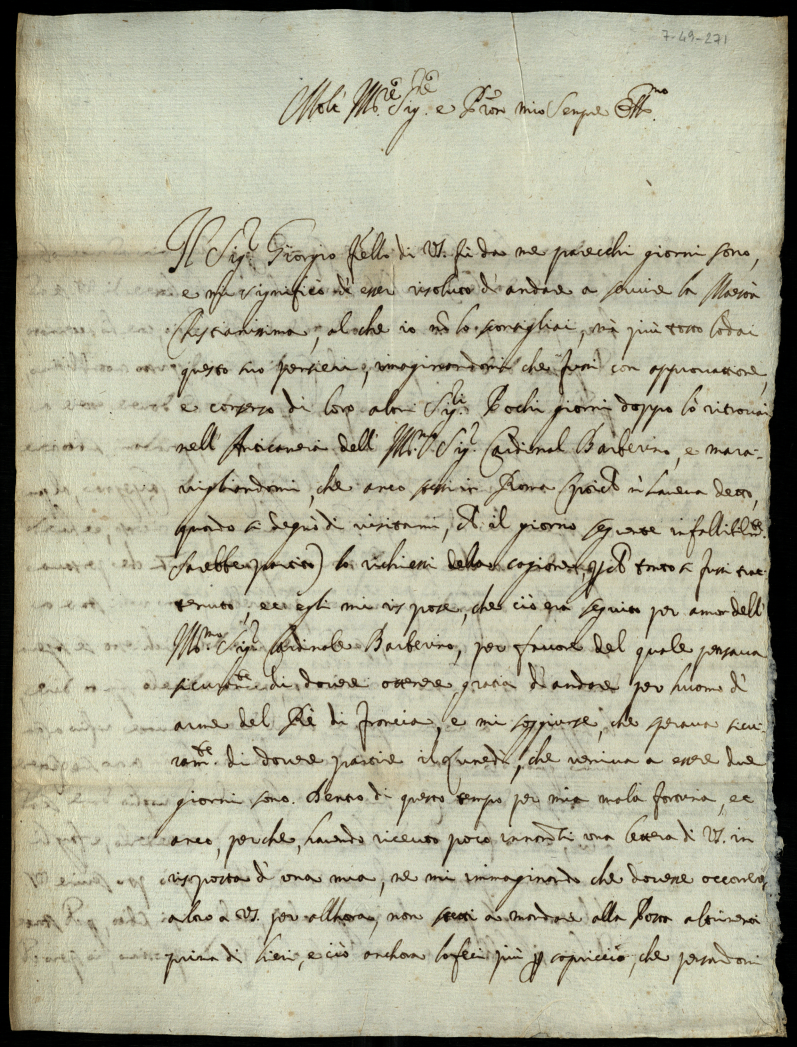 7-49-271
Molt' Ill.re Sig.re e Pron mio sempre Oss.mo
Il Sig.r Giorgio fr̃ello di VS. fù da me parecchi giorni sono,
e mi significò d'esser risoluto d'andare a servire la Maestà
Christianissima, al che io nõ lo sconsigliai, mà più tosto lodai
questo suo pensiero, immaginandomi che fussi con approvattione,
e consenso di loro altri Sig.ri Pochi giorni doppo lo ritrovai
nell'Anticamera dell'Ill.mo Sig.r Cardinal Barberino, e mara-
vigliandomi, che anco stessi in Roma (poiche m'haveva detto,
quando si degnò di visitarmi, che il giorno seguente infallibilm.te
sarebbe partito) lo richiesi della cagione, perche tanto si fussi trat-
tenuto, et egli mi rispose, che ciò era seguito per amor dell'
Ill.mo Sig.r Cardinale Barberino, per favore del quale pensava
sicuram.te di dovere ottenere gratia d'andare per huomo d'
arme del Rè di Francia, e mi soggiunse, che sperava sicu-
ram.te di dovere partire il Lunedì, che veniva a essere due
giorni sono. Dentro di questo tempo per mia mala fortuna, et
anco, perche, havendo ricevuto poco innanti una lettera di VS. in
risposta d'una mia, ne mi immaginando che dovesse occorrer
altro a VS. per allhora, non stetti a mandare alla Posta altrimenti
prima di hieri, e ciò anchora lo feci più per capriccio, che pensandomi